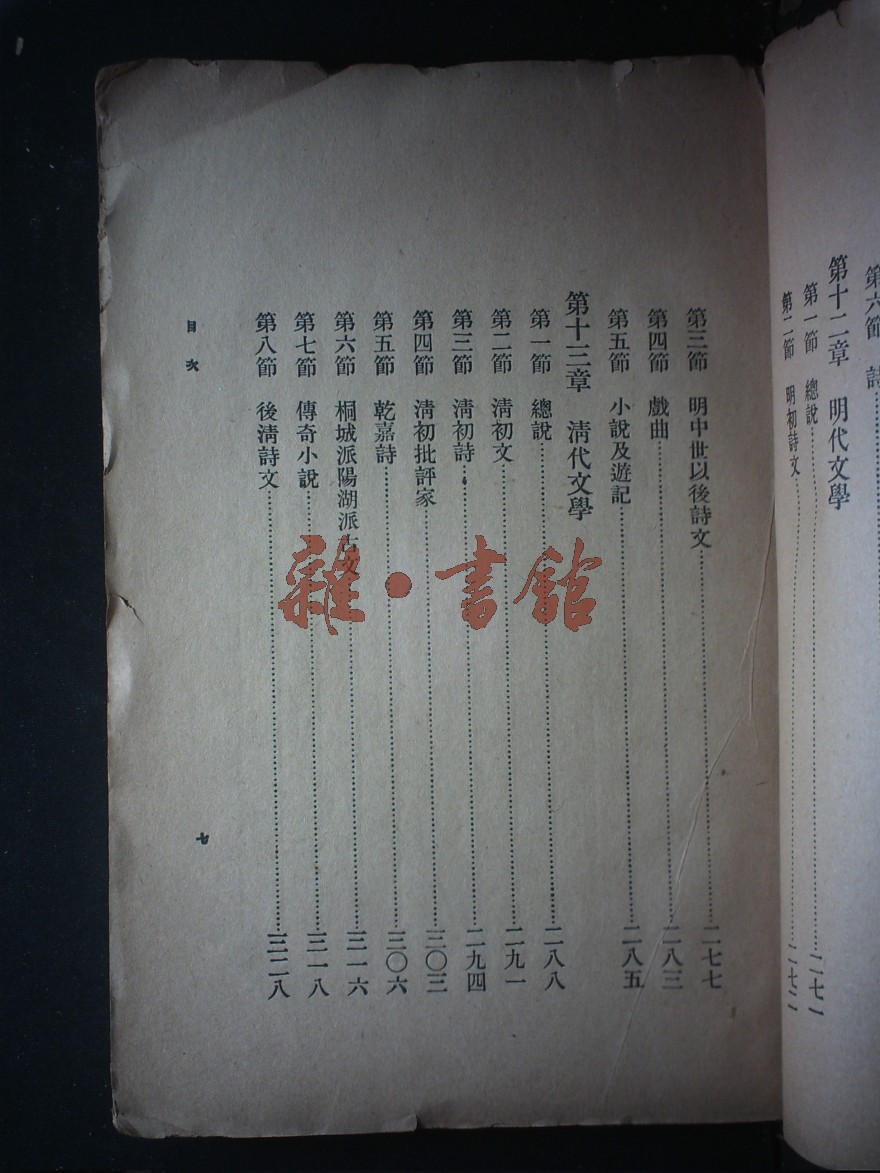 第六節 詩
第十二章 明代文學
第一節 總說 二七一
第二節 明初詩文 二七二
第三節 明中世以後詩文 二七七
第四節 戲曲 二八三
第五節 小說及遊記 二八五
第十三章 清代文學
第一節 總說 二八八
第二節 清初文 二九一
第三節 清初詩 二九四
第四節 清初批評家 三〇三
第五節 乾嘉詩 三〇六
第六節 桐城派陽湖派古文 三一六
第七節 傳奇小說 三一八
第八節 後清詩文 三二八
目次
七
雜·書館